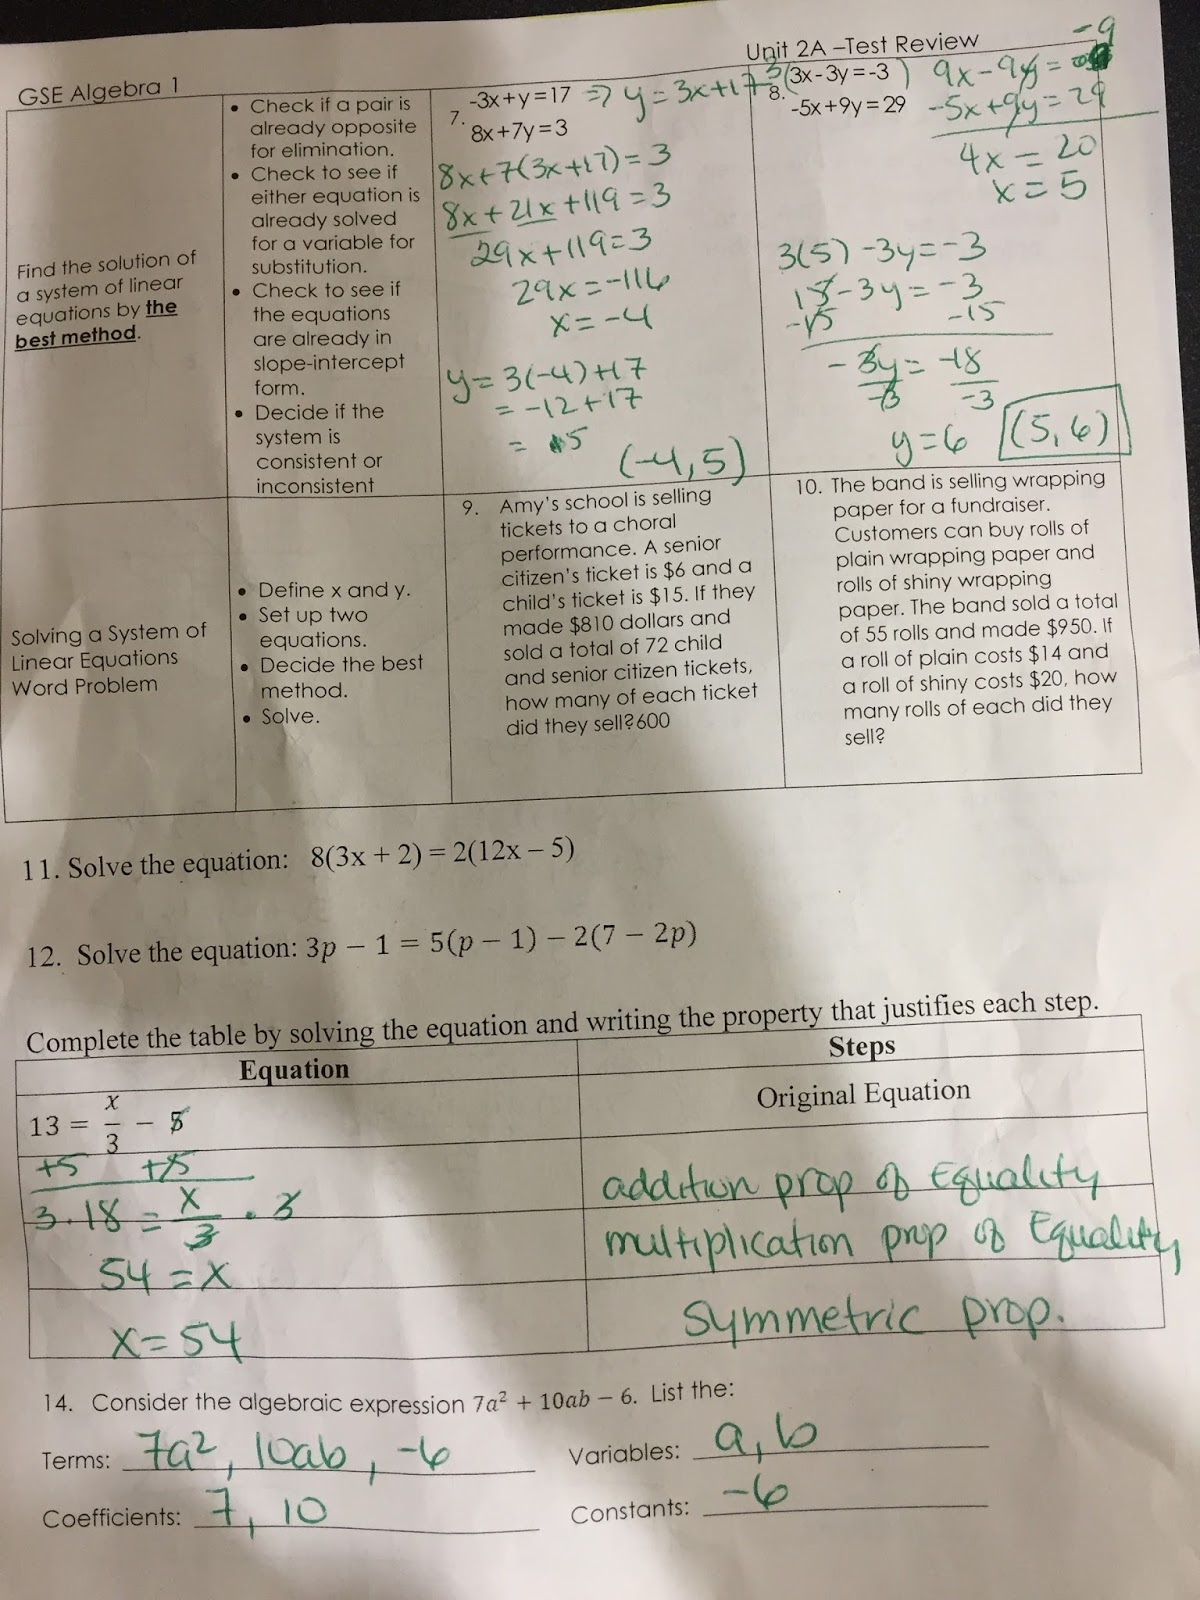 GSE Algebra 1
Unit 2A –Test Review
Find the solution of
a system of linear
equations by the
best method.
• Check if a pair is
already opposite
for elimination.
• Check to see if
either equation is
already solved
for a variable for
substitution.
• Check to see if
the equations
are already in
slope-intercept
form.
• Decide if the
system is
consistent or
inconsistent
7. -3x+y=17 => y=3x+17
8x+7y=3
8x+7(3x+17)=3
8x+21x+119=3
29x+119=3
29x=-116
x=-4
y=3(-4)+17
=-12+17
= 5
(-4,5)
8. 3(3x-3y=-3)
-5x+9y=29
-9
9x-9y=
-5x+9y=29
4x=20
x=5
3(5)-3y=-3
15-3y=-3
-15 -15
-3y=-18
-3 -3
y=6 (5,6)
Solving a System of
Linear Equations
Word Problem
• Define x and y.
• Set up two
equations.
• Decide the best
method.
• Solve.
9. Amy's school is selling
tickets to a choral
performance. A senior
citizen's ticket is $6 and a
child's ticket is $15. If they
made $810 dollars and
sold a total of 72 child
and senior citizen tickets,
how many of each ticket
did they sell?600
10. The band is selling wrapping
paper for a fundraiser.
Customers can buy rolls of
plain wrapping paper and
rolls of shiny wrapping
paper. The band sold a total
of 55 rolls and made $950. If
a roll of plain costs $14 and
a roll of shiny costs $20, how
many rolls of each did they
sell?
11. Solve the equation: 8(3x + 2) = 2(12x – 5)
12. Solve the equation: 3p − 1 = 5(p − 1) − 2(7 − 2p)
Complete the table by solving the equation and writing the property that justifies each step.
Equation
Steps
13 = x/3 − 5
Original Equation
+5 +5
addition prop of Equality
3·18 = x/3 · 3
multiplication prop of Equality
54 = x
x = 54
Symmetric prop.
14. Consider the algebraic expression 7a² + 10ab − 6. List the:
Terms: 7a², 10ab, -6
Variables: a, b
Coefficients: 7, 10
Constants: -6